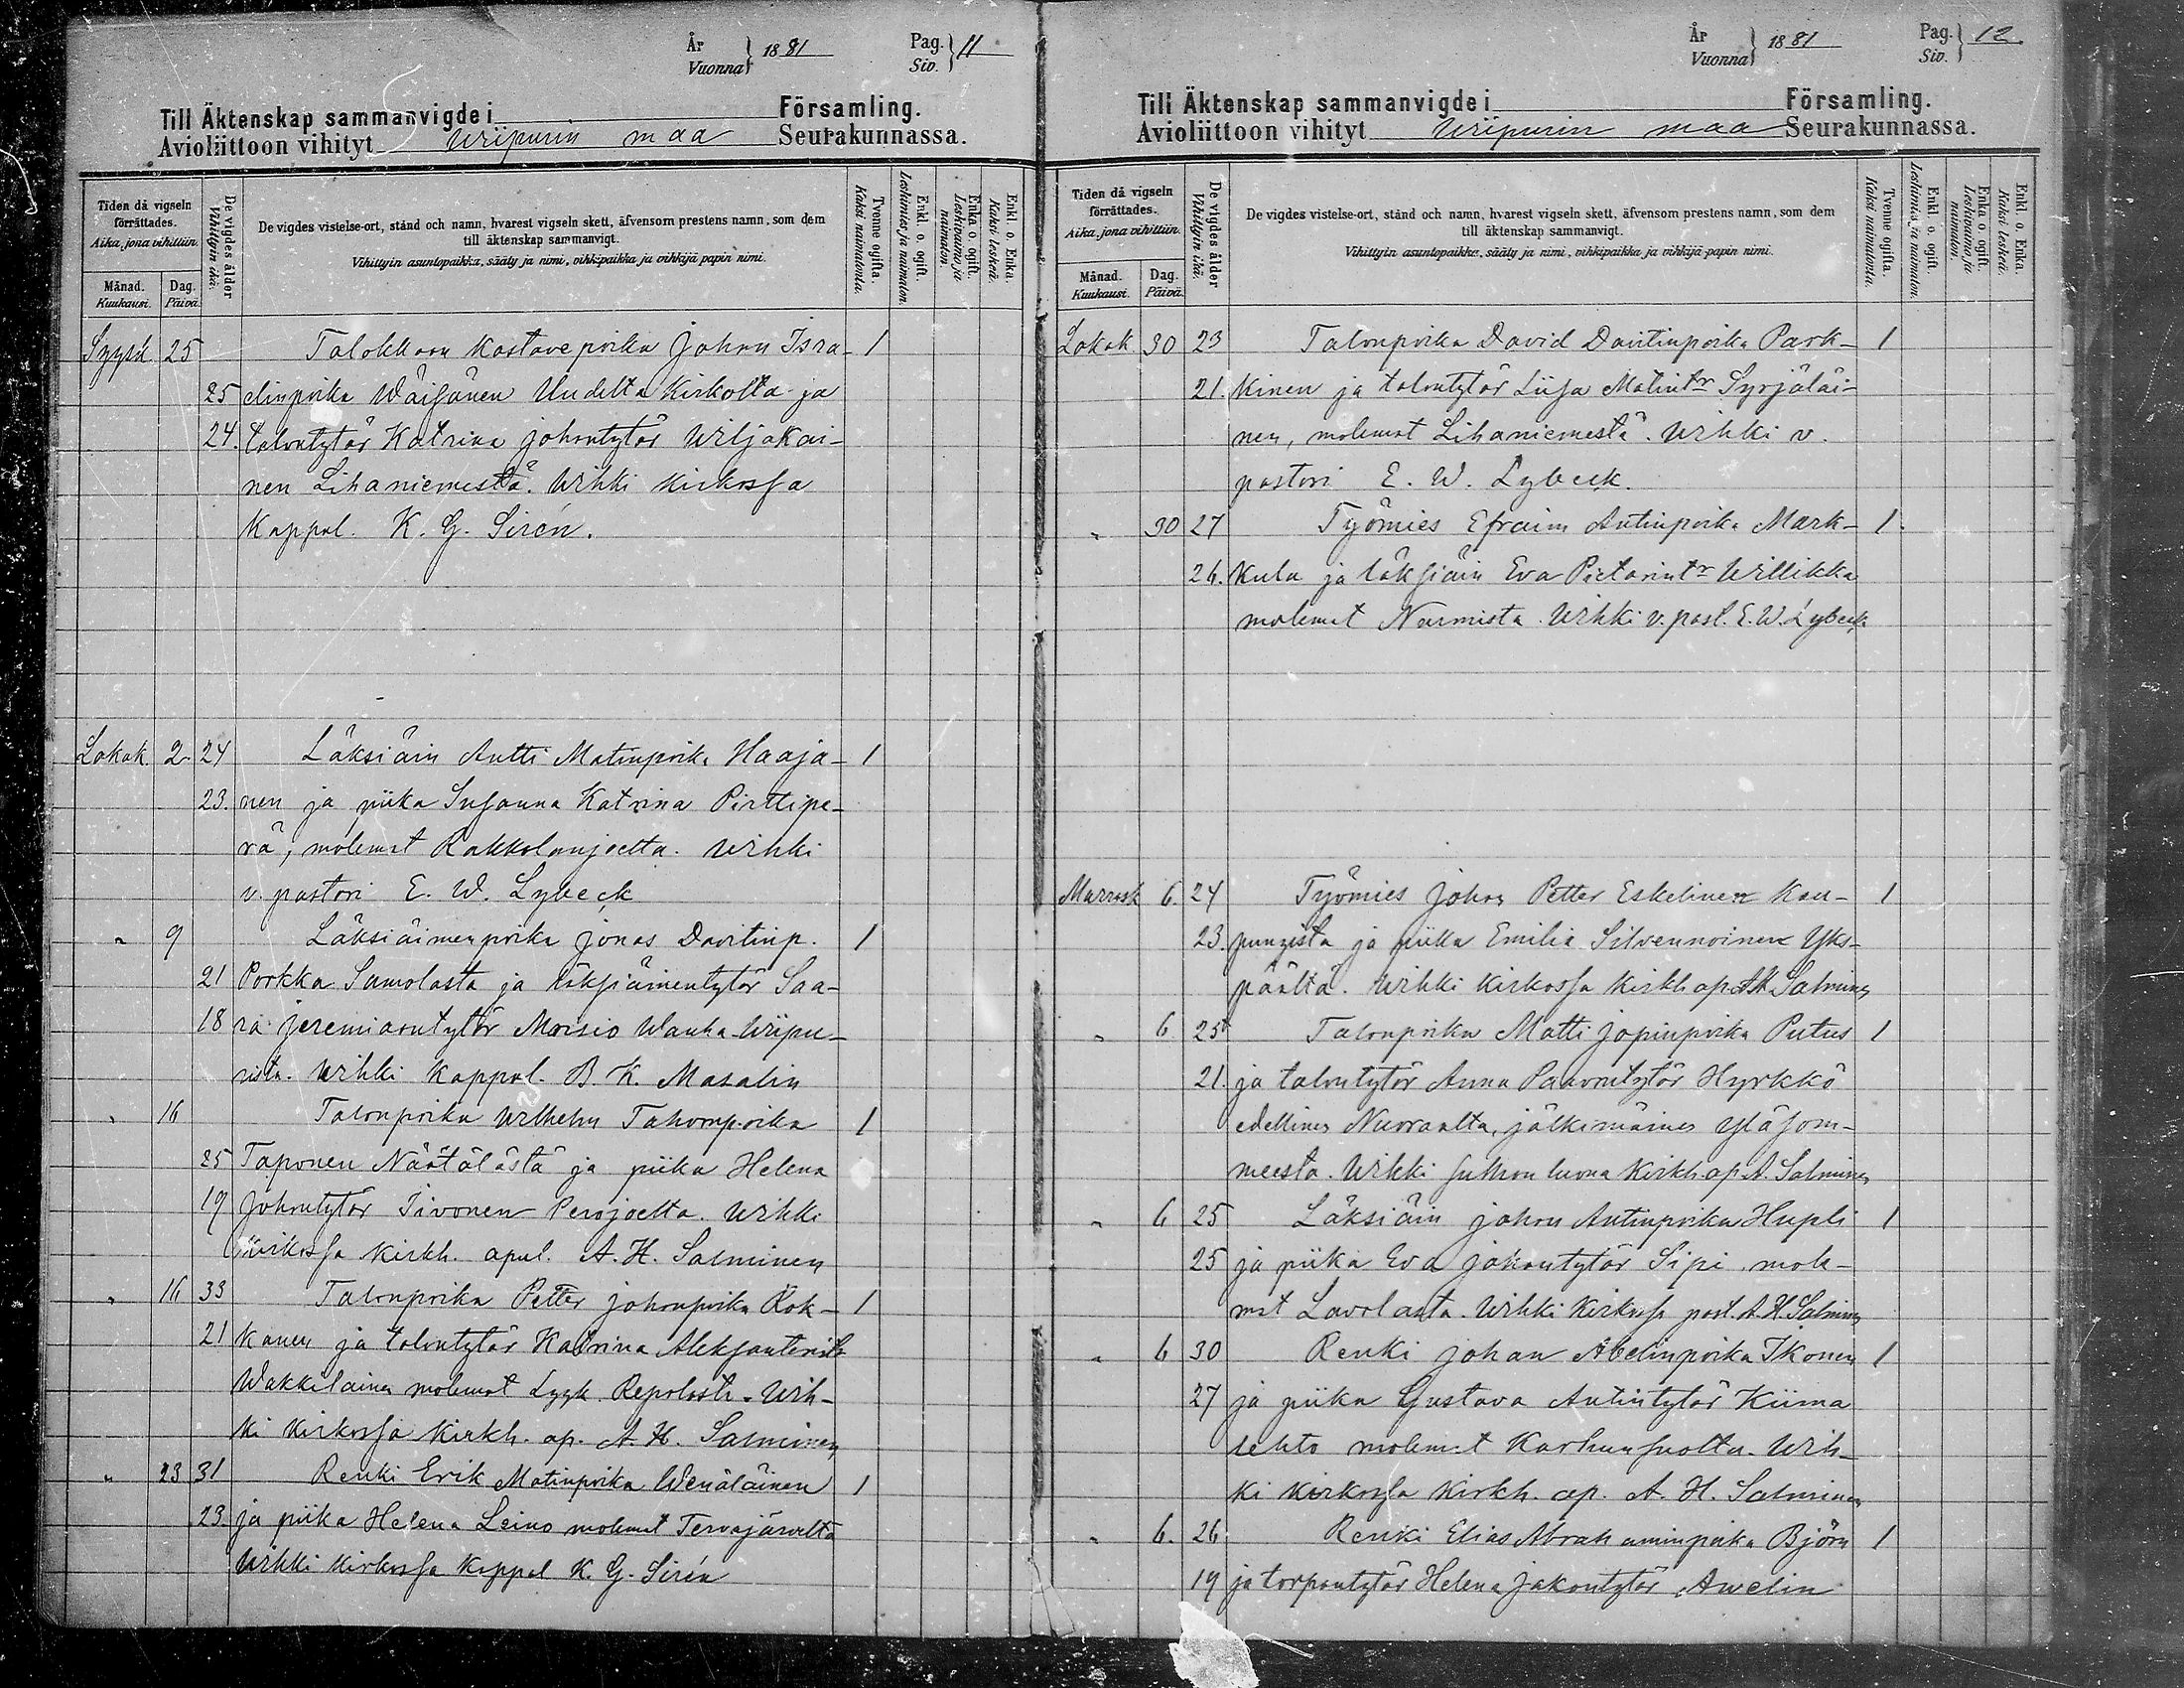 År
Vuonna } 1881
Pag.
Siv. } 11
Till Äktenskap sammanvigde i Församling.
Avioliittoon vihityt Wiipurin maa Seurakunnassa.
Tiden då vigseln förrättades.
Aika, jona vihittiin.
Månad.
Kuukausi.
Dag.
Päivä.
De vigdes ålder
Vihittyin ikä.
De vigdes vistelse-ort, stånd och namn, hvarest vigseln skett, äfvensom prestens namn, som dem
till äktenskap sammanvigt.
Vihittyin asuntopaikka, sääty ja nimi, vihkipaikka ja vihkijä papin nimi.
Tvenne ogifta.
Kaksi naimatonta.
Enkl. o. ogift.
Leskimies ja naimaton.
Enka o. ogift.
Leskivaimo ja naimaton.
Enkl. o. Enka.
Kaksi leskeä.
Syysk. 25 Talokkaan kasvatepoika Johan Isra- 1
25 elinpoika Wäisänen Uudelta Kirkolta ja
24. talontytär Katrina Johontytär Wiljakai-
nen Lihaniemestä. Wihki kirkossa
Kappal. K. G. Sirén.
Lokak. 2. 24 Läksiäin Antti Matinpoika Haaja- 1
23. nen ja piika Susanna Katrina Pirttipe-
rä, molemat Rakkolanjoelta. Wihki
v. pastori E. W. Lybeck
" 9 Läksiäimenpoika Jonas Davitinp. 1
21 Porkka Samolasta ja läksiäimentytär Saa-
18 ra Jeremiaantytär Moisio Wanha-Wiipu-
rista. Wihki Kappal. B. K. Masalin
" 16 Talonpoika Wilhelm Tahvonpoika 1
25 Taponen Näätälästä ja piika Helena
19 Johontytär Tivonen Perojoelta. Wihki
kirkossa kirkh. apul. A. H. Salminen
" 16 33 Talonpoika Petter Johonpoika Kok- 1
21 kanen ja talontytär Katrina Aleksanterintr
Wakkilainen molemat Lyyk. Repolasta. Wih-
ki kirkossa kirkh. ap. A. H. Salminen
" 23 31 Renki Erik Matinpoika Wenäläinen 1
23. ja piika Helena Leino molemat Tervajärveltä
Wihki kirkossa Kappal K. G. Sirén
År
Vuonna } 1881
Pag.
Siv. } 12.
Till Äktenskap sammanvigde i Församling.
Avioliittoon vihityt Wiipurin maa Seurakunnassa.
Tiden då vigseln förrättades.
Aika, jona vihittiin.
Månad.
Kuukausi.
Dag.
Päivä.
De vigdes ålder
Vihittyin ikä.
De vigdes vistelse-ort, stånd och namn, hvarest vigseln skett, äfvensom prestens namn, som dem
till äktenskap sammanvigt.
Vihittyin asuntopaikka, sääty ja nimi, vihkipaikka ja vihkijä papin nimi.
Tvenne ogifta.
Kaksi naimatonta.
Enkl. o. ogift.
Leskimies ja naimaton.
Enka o ogift.
Leskivaimo ja naimaton.
Enkl. o. Enka.
Kaksi leskeä.
Lokak 30 23 Talonpoika David Davitinpoika Park- 1
21. kinen ja talontytär Liisa Matintr Syrjäläi-
nen, molemat Lihaniemestä. Wihki v.
pastori E. W. Lybeck.
" 30 27 Työmies Efraim Antinpoika Mark- 1.
26. kula ja läksiäin Eva Pietarintr Willikka
molemat Nurmista. Wihki v. past. E. W. Lybeck
Marrask 6. 24 Työmies Johan Petter Eskelinen Kau- 1
23. pungista ja piika Emilia Silvennoinen Yks-
päältä. Wihki kirkossa kirkh ap. A H Salminen
" 6 25 Talonpoika Matti Jopinpoika Putus 1
21. ja talontytär Anna Paavontytär Hyrkkö
edellinen Nuoraalta, jälkimäinen Yläsom-
meesta. Wihki luona kirkh. ap. A. Salminen
" 6 25 Läksiäin Johan Antinpoika Hupli 1
25 ja piika Eva Johontytär Sipi mole-
mat Lavolasta. Wihki Kirkossa past. A. H. Salminen
" 6 30 Renki Johan Abelinpoika Ikonen 1
27 ja piika Gustava Antintytär Kiima
lehto molemat Karhunsuolta. Wih-
ki kirkossa kirkh. ap. A. H. Salminen
" 6. 26 Renki Elias Abrahaminpoika Björn 1
19 ja torpantytär Helena Jakontytär Awelin